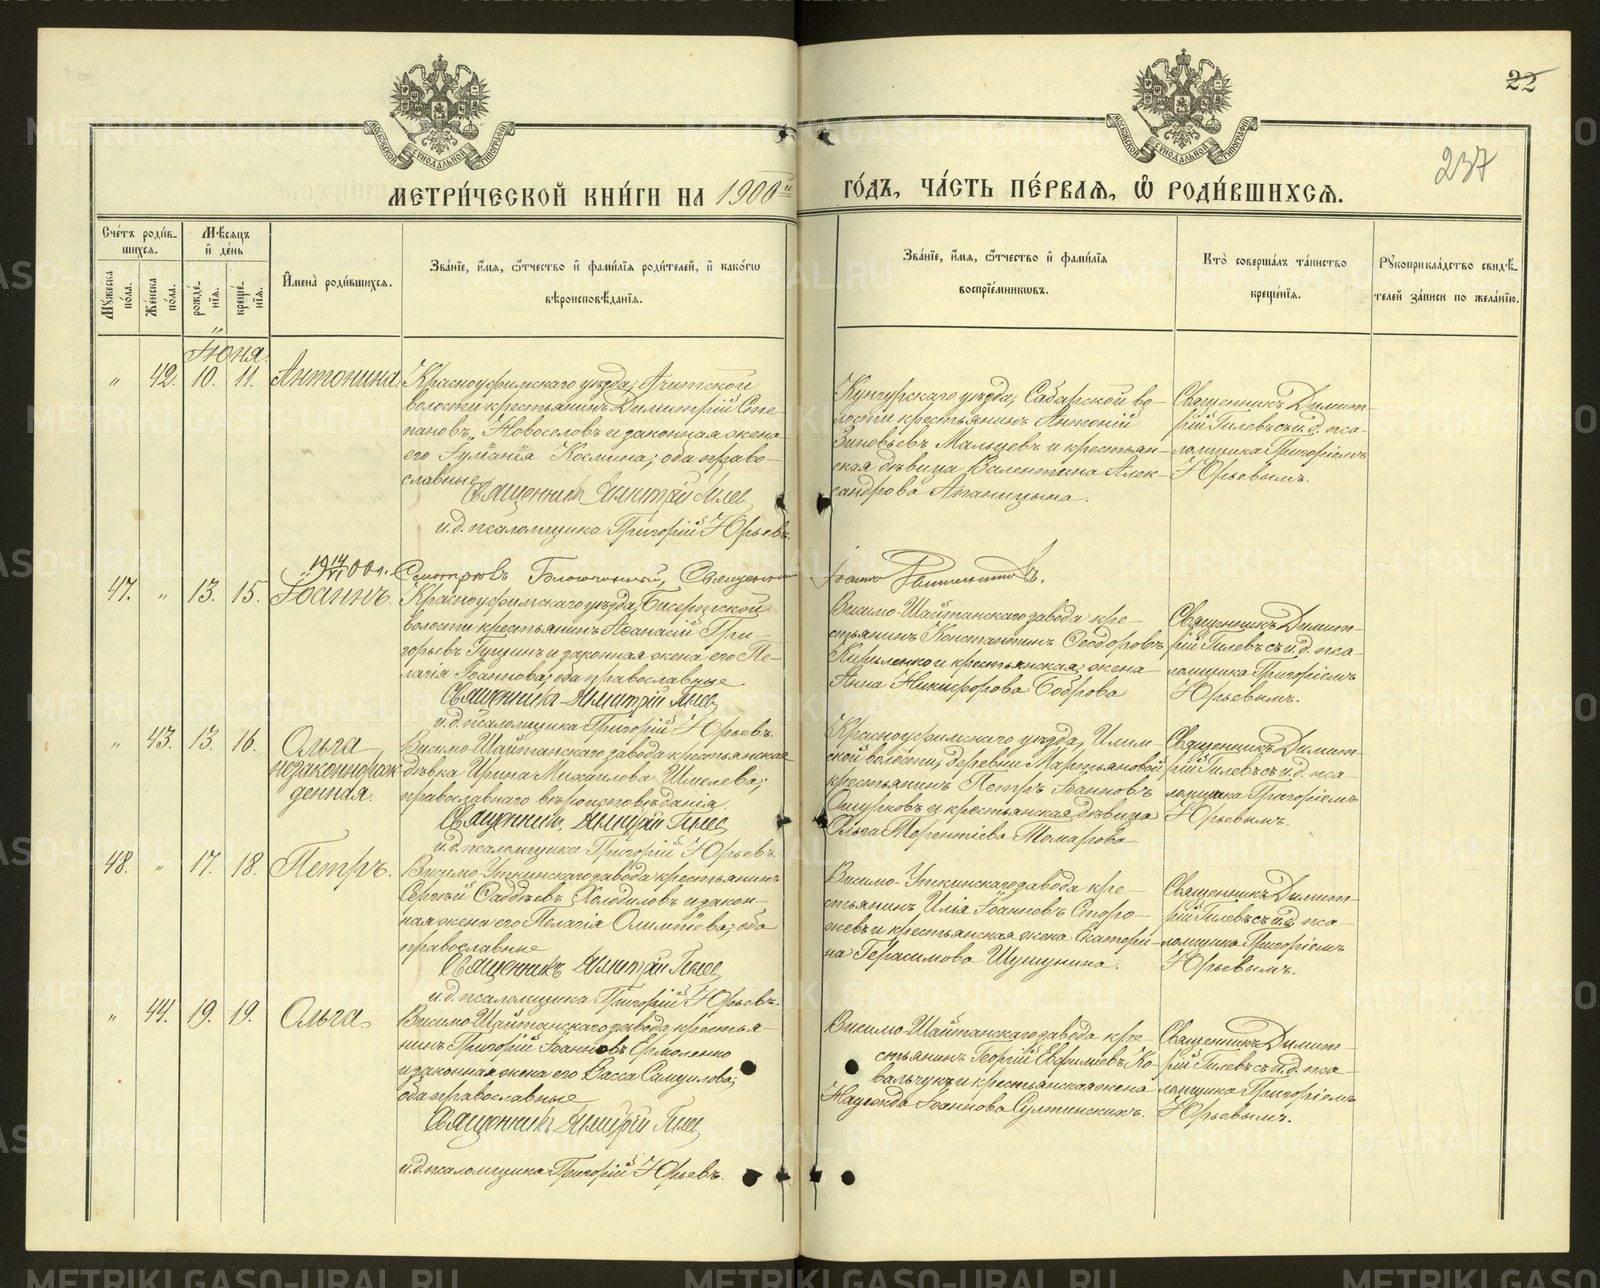 22
237
МЕТРИ́ЧЕСКОЙ КНИ́ГИ НА 1900й ГО́ДЪ, ЧА́СТЬ ПЕ́РВАЯ, Ѽ РОДИ́ВШИХСЯ.
Сче́тъ роди́в-
шихся.
Мꙋжеска по́ла.
Же́нска по́ла.
Мѣ́сяцъ
и҆ де́нь
рожде́-
нїя.
креще́-
нїя.
И҆мена̀ роди́вшихся.
Зва́нїе, и҆́мя, ѻ҆́тчество и҆ фами́лїя роди́телей, и҆ како́гѡ
вѣроисповѣ́данїя.
Зва́нїе, и҆́мя, ѻ҆́тчество и҆ фами́лїя
воспрїе́мникѡвъ.
Кто̀ соверша́лъ та́инство
креще́нїя.
Рꙋкоприкла́дство свидѣ́-
телей за́писи по жела́нїю.
Іюня.
" 42. 10. 11. Антонина
Красноуфимскаго уѣзда, Ачитской
волости крестьянинъ Димитрій Сте-
пановъ Новоселовъ и законная жена
его Іуліанія Космина; оба право-
славные
Священникъ Димитрій Гилев
и.д. псаломщика Григорій Юрьевъ.
Кунгурскаго уѣзда, Сабарской во-
лости крестьянинъ Антоній
Зиновьевъ Мальцевъ и крестьян-
ская дѣвица Валентина Алек-
сандрова Апаницына.
Священникъ Димит-
рій Гилевъ съ и.д. пса-
ломщика Григоріемъ
Юрьевымъ.
Смотрѣлъ Благочинный, Священникъ
47. " 13. 15. Іоаннъ.
Красноуфимскаго уѣзда, Бисертской
волости крестьянинъ Аѳанасій Гри-
горьевъ Гущинъ и законная жена его Пе-
лагія Іоаннова; оба православные
Священникъ Димитрій Гилев
и.д. псаломщика Григорій Юрьевъ.
Висимо-Шайтанскаго завода кре-
стьянинъ Константинъ Ѳеодоровъ
Кириленко и крестьянская жена
Анна Никифорова Боброва
Священникъ Димит-
рій Гилевъ съ и.д. пса-
ломщика Григоріемъ
Юрьевымъ.
" 43. 13. 16. Ольга
незаконнорож-
денная.
Висимо-Шайтанскаго завода крестьянская
дѣвка Ирина Михаилова Шмелева;
православнаго вѣроисповѣданія.
Священникъ Димитрій Гилев
и.д. псаломщика Григорій Юрьевъ.
Красноуфимскаго уѣзда, Илим-
ской волости, деревни Мартьяновой
крестьянинъ Петръ Іоанновъ
Ошурковъ и крестьянская дѣвица
Ольга Терентіева Комарова
Священникъ Димит-
рій Гилевъ съ и.д. пса-
ломщика Григоріемъ
Юрьевымъ.
48. " 17. 18. Петръ.
Висимо-Уткинскаго завода крестьянинъ
Сергѣй Ѳаддѣевъ Холодиловъ и закон-
ная жена его Пелагія Олимпіева; оба
православные
Священникъ Димитрій Гилев
и.д. псаломщика Григорій Юрьевъ.
Висимо-Уткинскаго завода кре-
стьянинъ Илія Іоанновъ Сторо-
жевъ и крестьянская жена Екатери-
на Герасимова Шушунина.
Священникъ Димит-
рій Гилевъ съ и.д. пса-
ломщика Григоріемъ
Юрьевымъ.
" 44. 19. 19. Ольга
Висимо-Шайтанскаго завода крестья-
нинъ Григорій Іоанновъ Ермоленко
и законная жена его Васса Самуилова;
оба православные
Священникъ Димитрій Гилев
и.д. псаломщика Григорій Юрьевъ.
Висимо-Шайтанскаго завода кре-
стьянинъ Георгій Евфиміевъ Ко-
вальчукъ и крестьянская жена
Надежда Іоаннова Султинскихъ.
Священникъ Димит-
рій Гилевъ съ и.д. пса-
ломщика Григоріемъ
Юрьевымъ.
METRIKI.GASO-URAL.RU